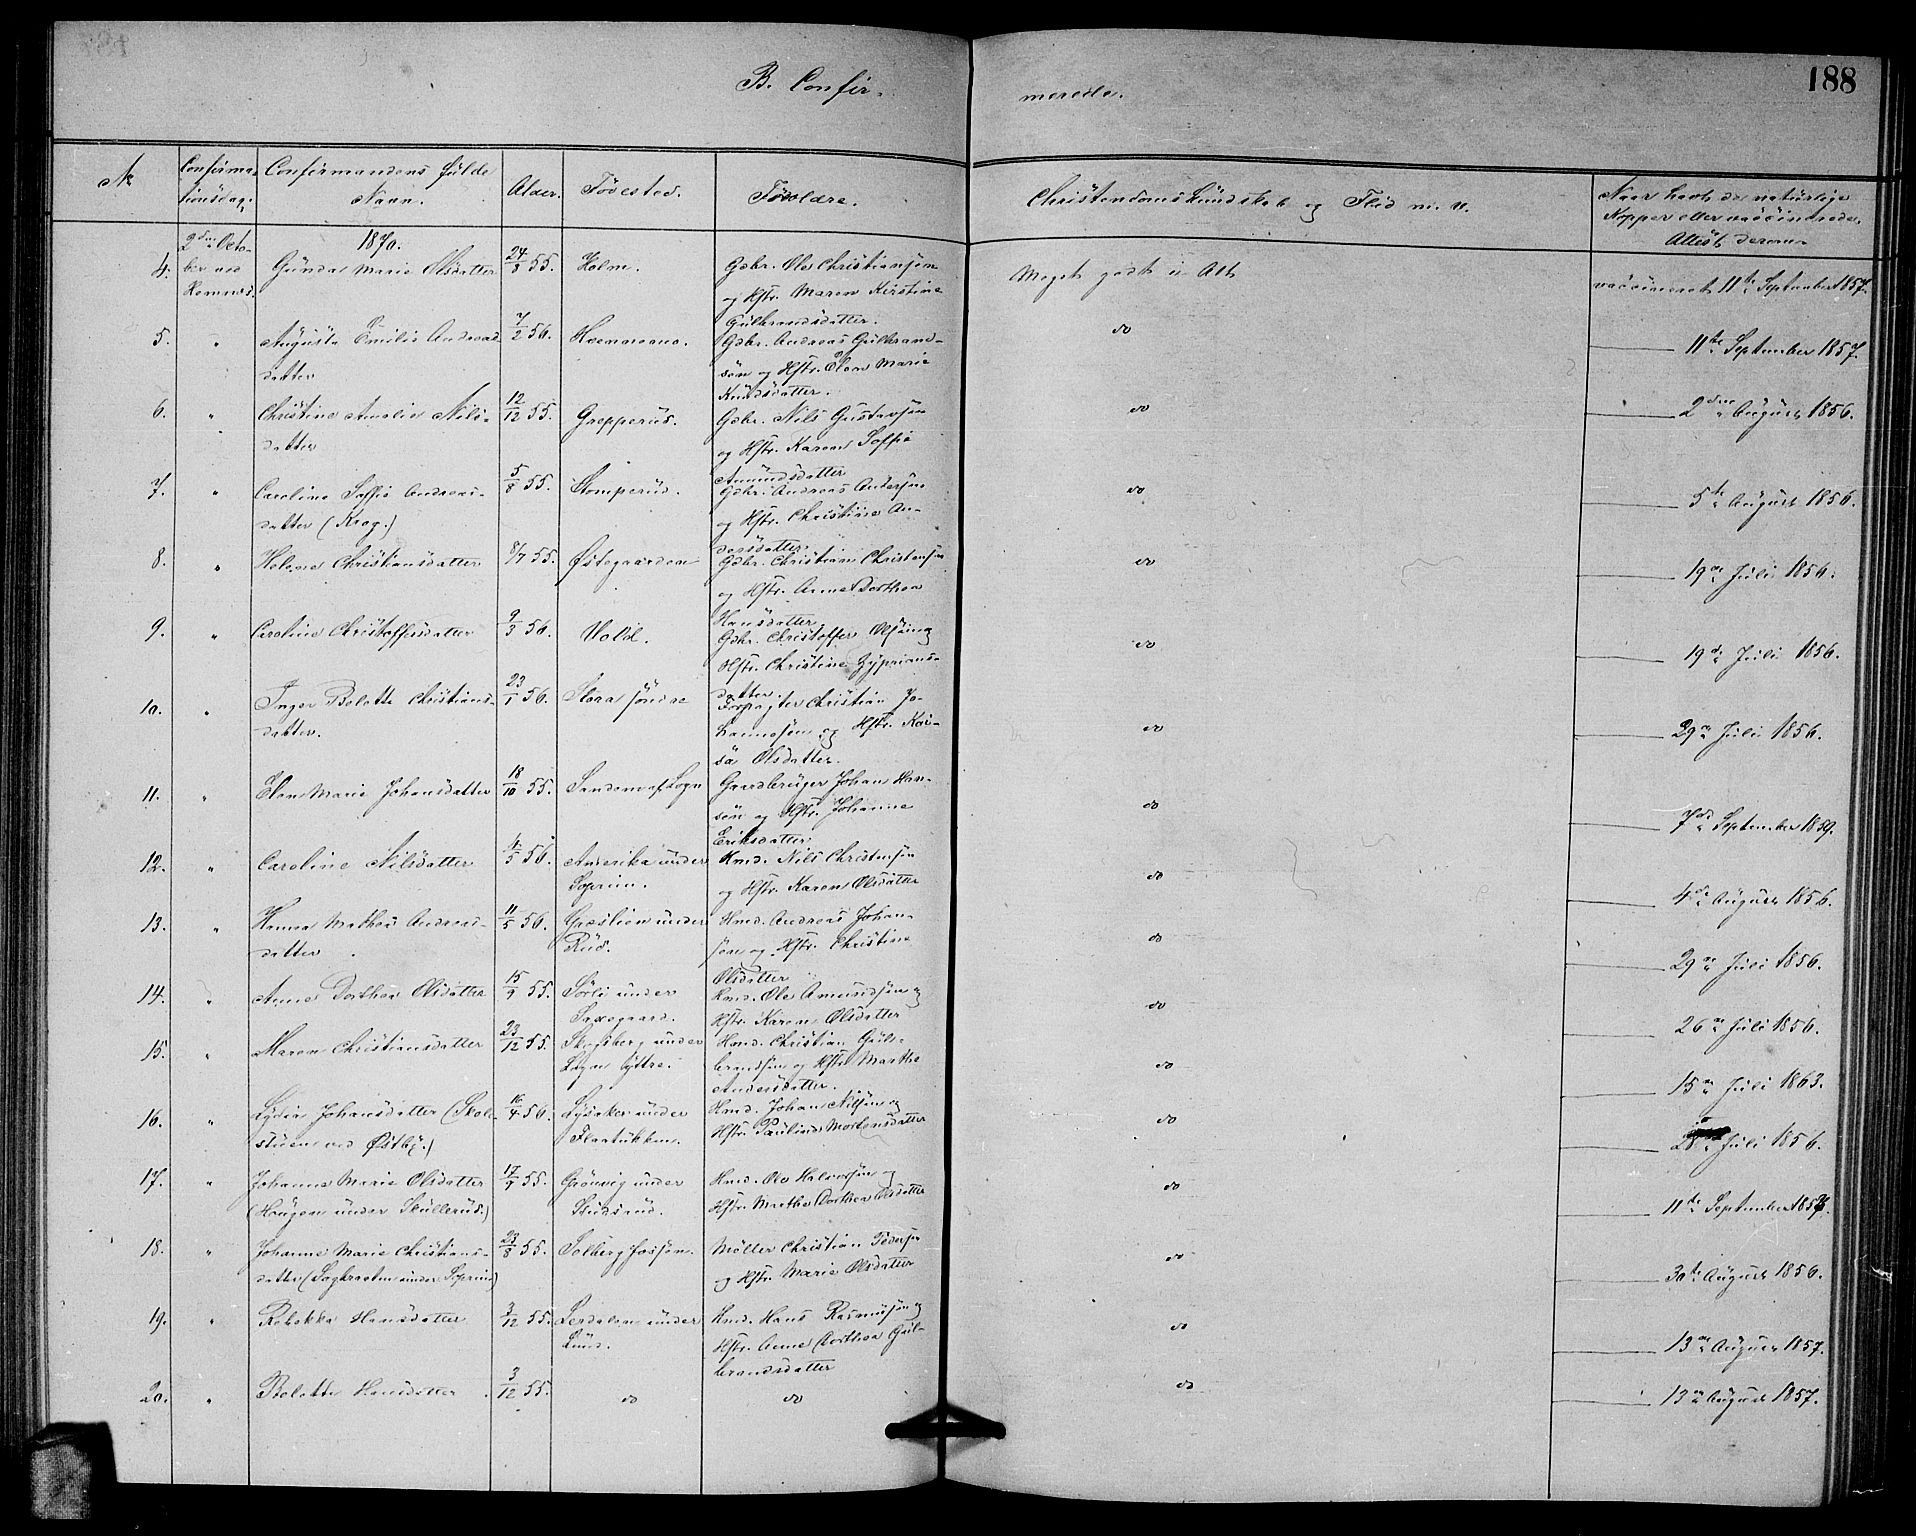 B. Confir-
merede.
188
№
Confirma-
tionsdag.
Confirmandens fulde
Navn.
Alder.
Fødested.
Forældre.
Christendomskundskab og Flid m. v.
Naar havt de naturlige
Kopper eller vaccinerede,
Attest derom
1870.
4.
2den Octo-
ber ved
Hemnes.
Gunda Marie Olsdatter
24/8 55.
Holm.
Gdbr. Ole Christiansøn
og Hstr. Maren Kirstine
Gulbrandsdatter.
Meget godt i Alt
vaccineret 11te September 1857.
5.
"
Augusta Emilie Andreas
datter
7/2 56.
Gdbr. Andreas Gulbrand-
søn og Hstr. Elen Marie
Knudsdatter.
do
11te September 1857.
6.
"
Christine Amalie Nils-
datter
12/12 55.
Grepperud.
Gdbr. Nils Gustavsøn
og Hstr. Karen Soffie
Amundsdatter
do
2den August 1856.
7.
"
Caroline Soffie Andreas-
datter (Krog.)
5/8 55.
Stomperud.
Gdbr. Andreas Andersøn
og Hstr. Christine An-
dersdatter
do
5te August 1856.
8.
"
Helene Christiansdatter
8/7 55.
Østegaarden
Gdbr. Christian Christensøn
og Hstr. Anne Dorthea
Hansdatter
do
19de Juli 1856.
9.
"
Caroline Christoffersdatter
9/3 56.
Vold.
Gdbr. Christoffer Olsøn og
Hstr. Christine Zyprians-
datter
do
19de Juli 1856.
10.
"
Inger Bolette Christians-
datter.
23/1 56.
Slora søndre
Forpagter Christian Jo-
hannesøn og Hstr. Kai-
sa Olsdatter.
do
29de Juli 1856.
11.
"
Elen Marie Johansdatter
18/10 55.
Gaardbruger Johan Han-
søn og Hstr. Johanne
Eriksdatter
do
7de September 1859.
12.
"
Caroline Nilsdatter
4/5 56.
Amerika under
Soprim.
Hmd. Nils Christensøn
og Hstr. Karen Olsdatter
do
4de August 1856.
13.
"
Hanna Mathea Andreas-
datter
11/5 56.
Græslien under
Rud.
Hmd. Andreas Johan-
søn og Hstr. Christine
Olsdatter
do
29de Juli 1856.
14.
"
Anne Dorthea Olsdatter
15/9 55.
Sørli under
Saxegaard.
Hmd. Ole Amundsøn og
Hstr. Karen Olsdatter
do
26de Juli 1856.
15.
"
Maren Christiansdatter
23/12 55.
Skogsberg under
Løgn lyttre.
Hmd. Christian Gul-
brandsøn og Hstr. Marthe
Andersdatter.
do
15de Juli 1863.
16.
"
Lydia Johansdatter (Skole-
stuen ved Østby.)
16/4 56.
Lysaker under
Flaatukken.
Hmd. Johan Nilsøn og
Hstr. Pauline Mortensdatter
do
Juli 1856.
17.
"
Johanne Marie Olsdatter
(Haugen under Skullerud.)
17/9 55.
Grønvig under
Studsrud.
Hmd. Ole Halvorsøn og
Hstr. Marthe Dorthea Olsdatter
do
11te September
18.
"
Johanne Marie Christians-
datter (Sagbraaten under Soprim)
23/8 55.
Solbergfossen.
Møller Christian Pedersøn
og Hstr. Marie Olsdatter
do
30te August 1856.
19.
"
Rebekka Hansdatter
3/12 55.
Lerdalen under
Lund.
Hmd. Hans Rasmusøn og
Hstr. Anne Dorthea Gul-
brandsdatter
do
13de August 1857.
20.
"
Bolette Hansdatter
3/12 55.
do
do
do
13de August 1857.